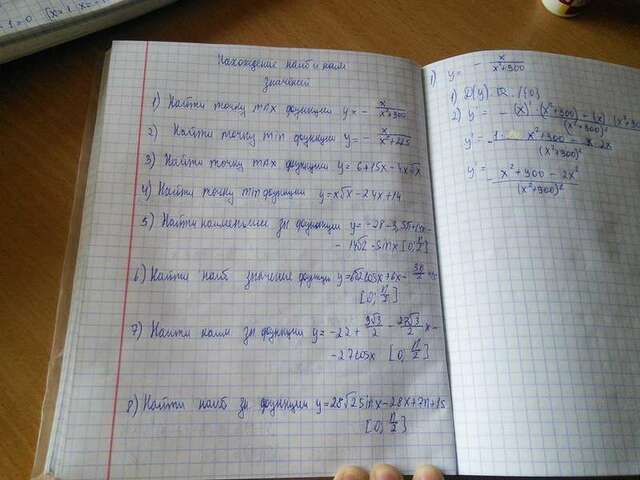 -1=0
Нахождение наиб и наим
значений
1) Найти точку max функции y = - x/(x²+900)
2) Найти точку min функции y = - x/(x²+225)
3) Найти точку max функции y = 6+15x -
4) Найти точку min функции y = x√x - 24x + 14
5) Найти наименьшее зн функции y =
- 14√2 · sin x [0; π/2]
6) Найти наиб значение функции
[0; π/2]
7) Найти наим зн функции y = -22 + 9√3/2 - x -
- 27cosx [0; π/2]
8) Найти наиб зн функции y = 28√2 sin x - 28x + 7π + 15
[0; π/2]
1) y = - x/(x²+900)
1) D(y)
2) y' = - (x)' · (x²+900) - (x) · /(x²+900)²
y' = - x²+900 - x · 2x/(x²+900)²
y' = - x² + 900 - 2x²/(x²+900)²